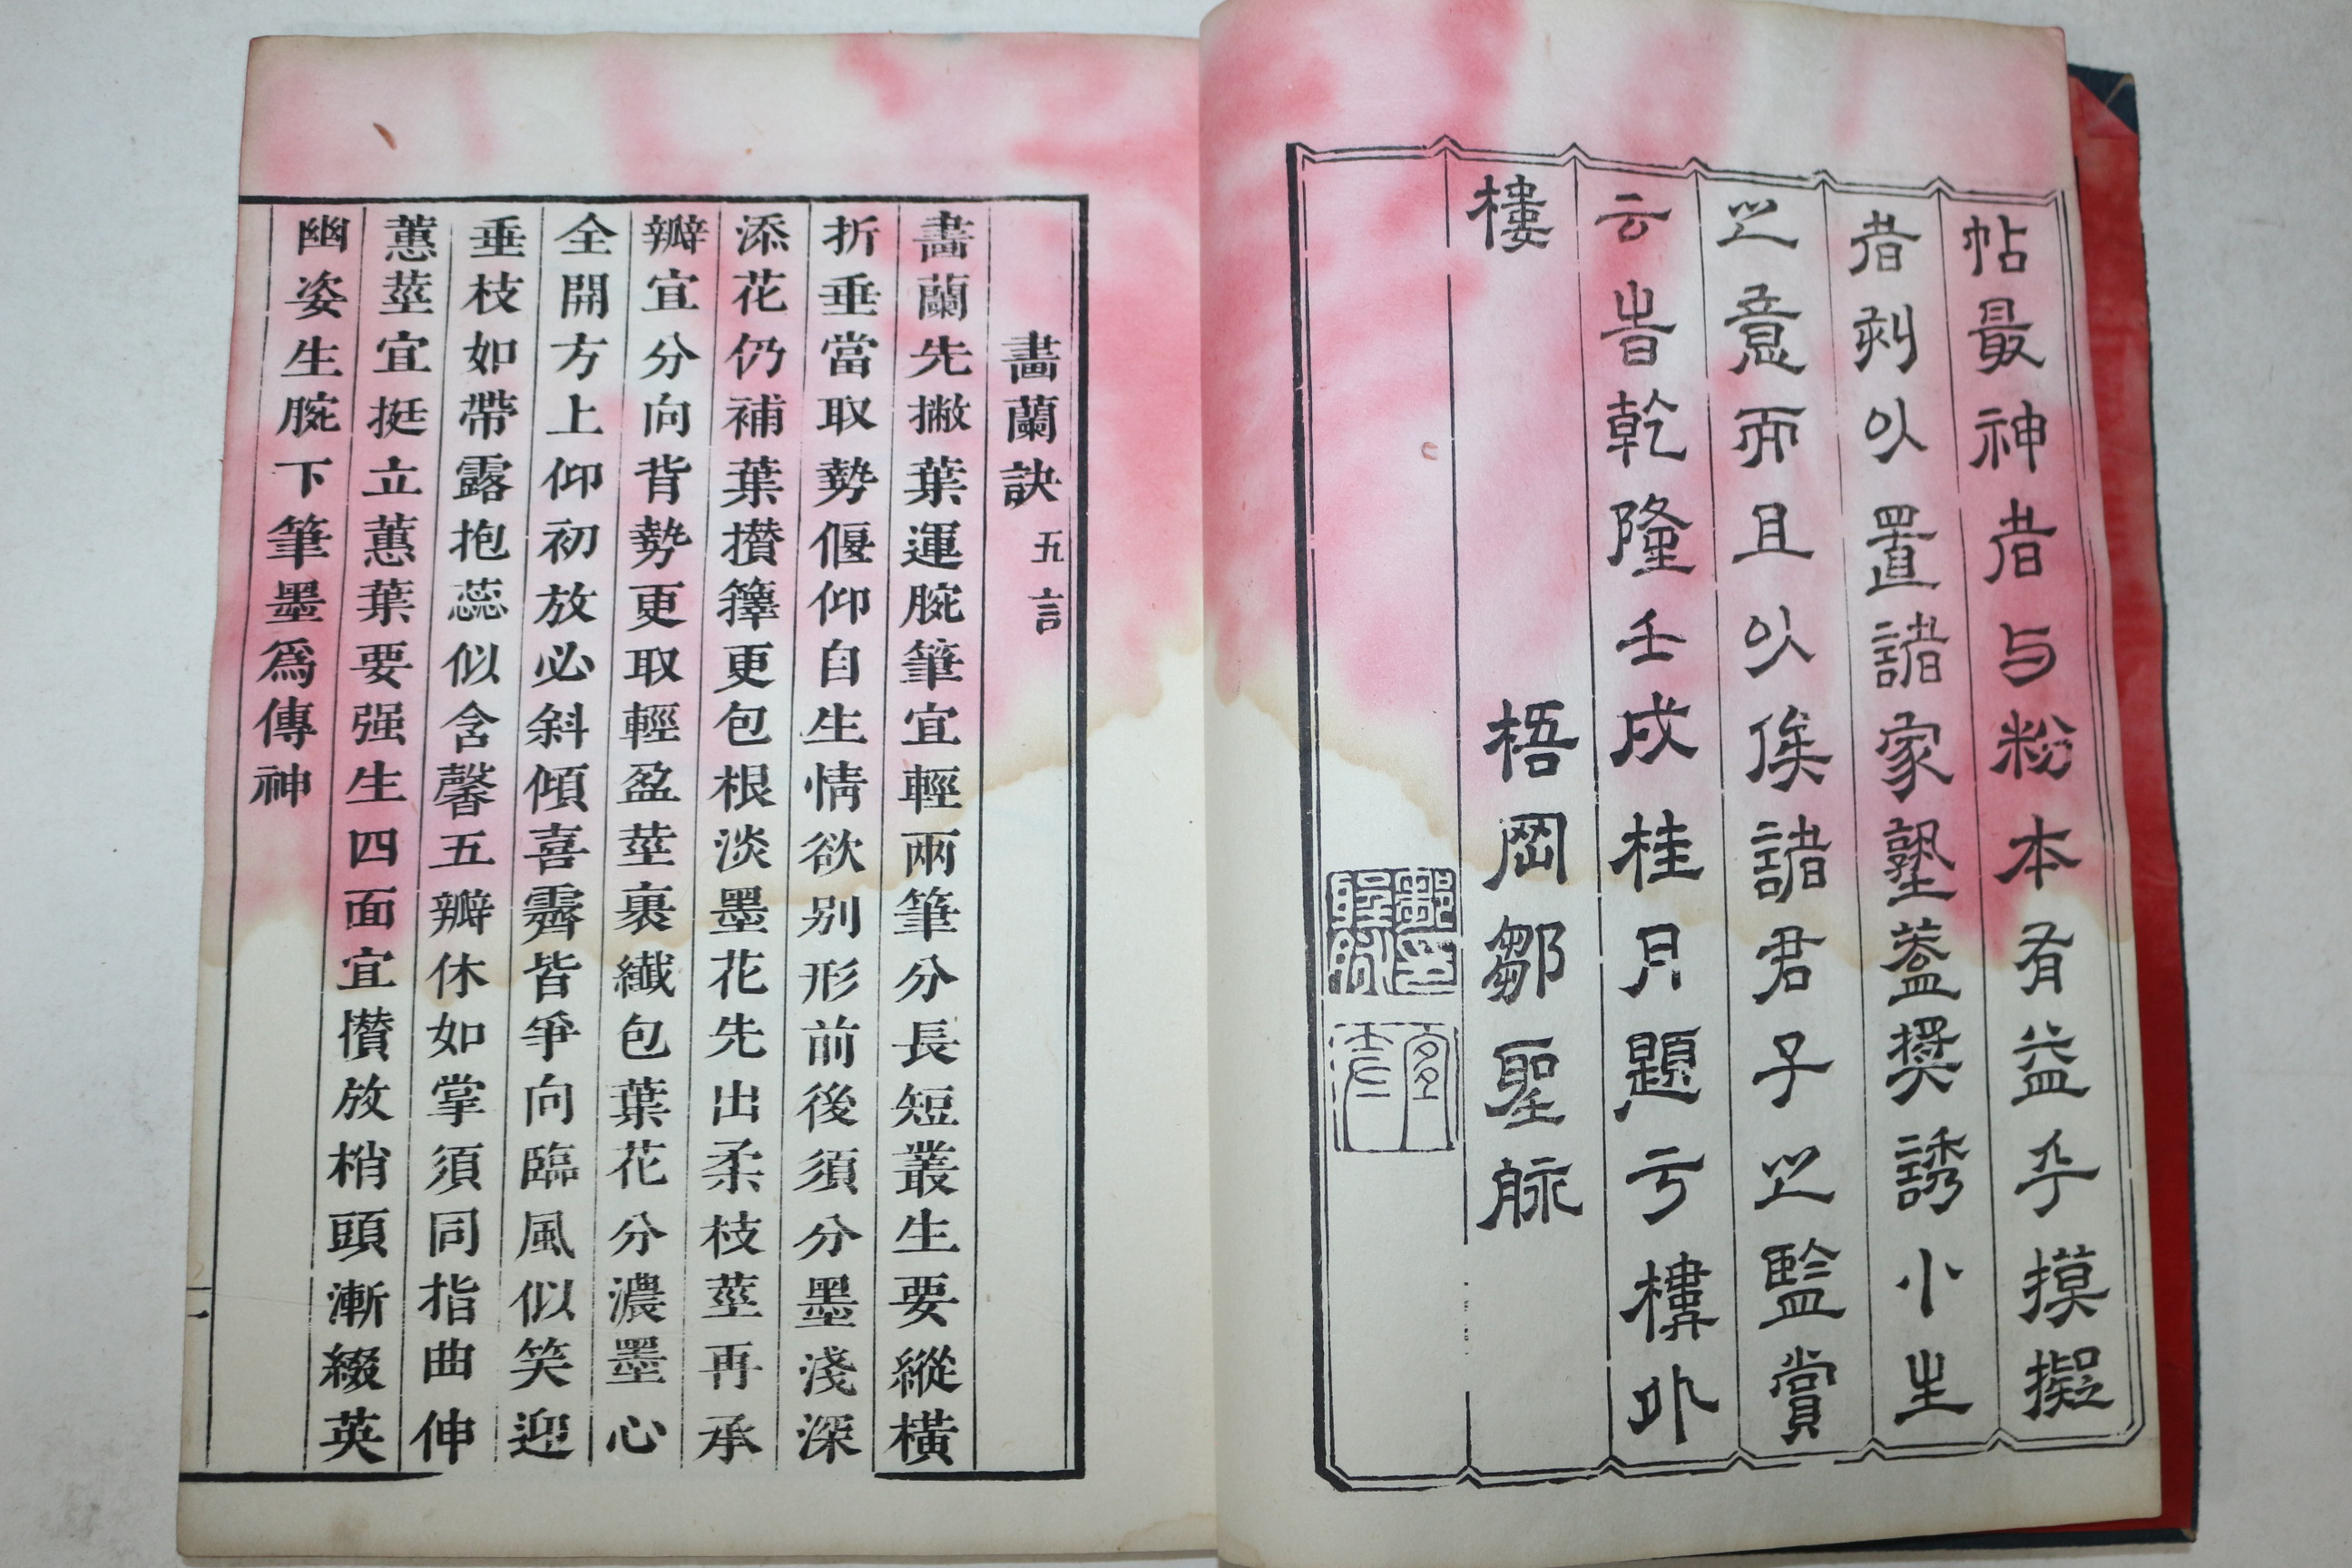 帖最神者与粉本有益乎摸擬
者剞以置諸家塾葢奬誘小生
之意而且以俟諸君子之監賞
云旹乾隆壬戌桂月題于樓外
樓
梧岡鄒聖脉
畫蘭訣五言
畫蘭先撇葉運腕筆宜輕兩筆分長短叢生要縱橫
折垂當取勢偃仰自生情欲别形前後須分墨淺深
添花仍補葉攅籜更包根淡墨花先出柔枝莖再承
瓣宜分向背勢更取輕盈莖裹纎包葉花分濃墨心
全開方上仰初放必斜傾喜霽皆爭向臨風似笑迎
垂枝如帶露抱蕊似含馨五瓣休如掌須同指曲伸
蕙莖宜挺立蕙葉要强生四面宜攅放梢頭漸綴英
幽姿生腕下筆墨爲傳神
一